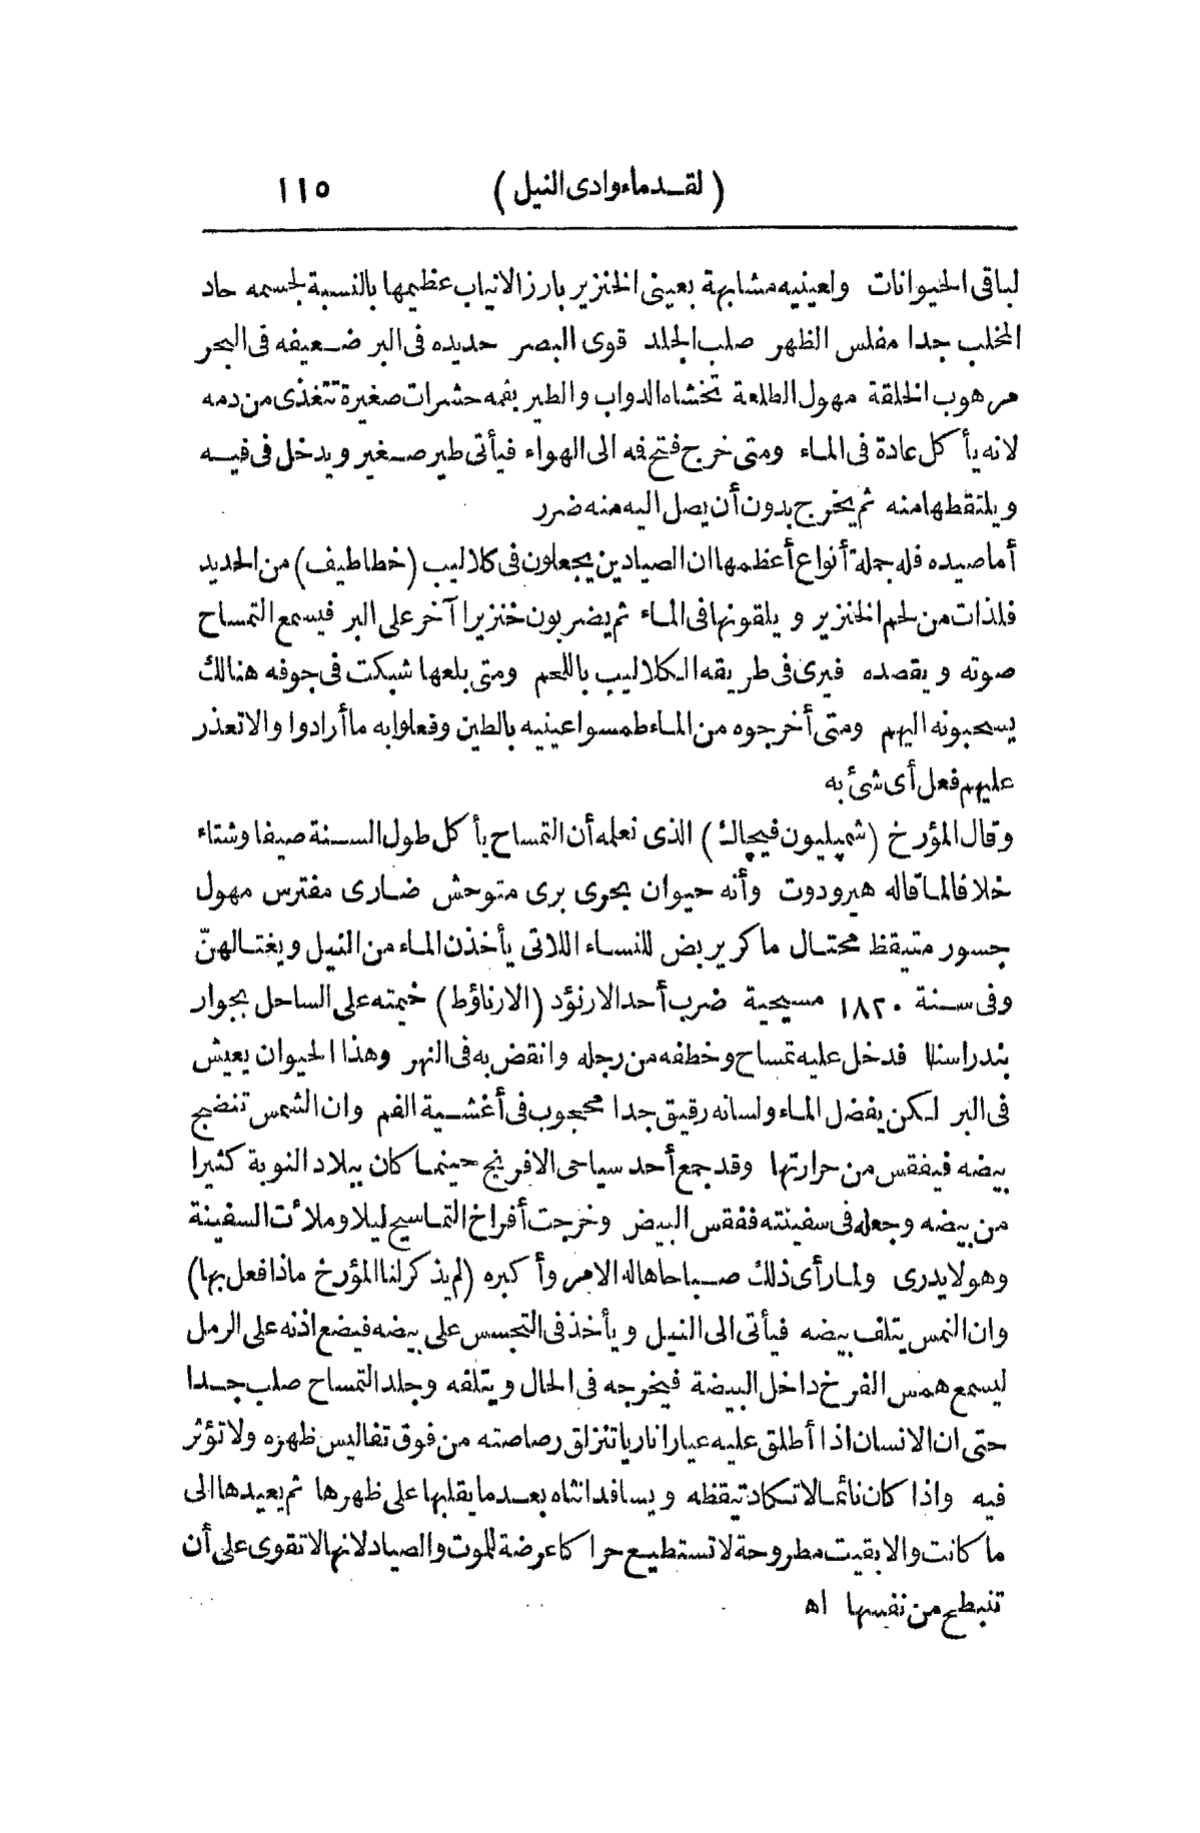 ( لقدماء وادى النيل ) ١١٥
لباقى الحيوانات ولعينيه مشابهة بعينى الخنزير بارز الانياب عظيمها بالنسبة لجسمه حاد
المخلب جدا مفلس الظهر صلب الجلد قوى البصر حديده فى البر ضعيفه فى البحر
مرهوب الخلقة مهول الطلعة تخشاه الدواب والطير بفمه حشرات صغيرة تتغذى من دمه
لانه يأكل عادة فى الماء ومتى خرج فتح فه الى الهواء فيأتى طير صغير ويدخل فى فيه
ويلتقطها منه ثم يخرج بدون أن يصل اليه منه ضرر
أما صيده فله جملة أنواع أعظمها ان الصيادين يجعلون فى كلاليب (خطاطيف) من الحديد
فلذات من لحم الخنزير ويلقونها فى الماء ثم يضربون خنزيرا آخر على البر فيسمع التمساح
صوته ويقصده فيرى فى طريقه الكلاليب باللحم ومتى بلعها شبكت فى جوفه هنالك
يسحبونه اليهم ومتى أخرجوه من الماء طمسوا عينيه بالطين وفعلوا به ما أرادوا والا تعذر
عليهم فعل أى شئ به
وقال المؤرخ (شمپليون فيچاك) الذى نعلمه أن التمساح يأكل طول السنة صيفا وشتاء
خلافا لما قاله هيرودوت وأنه حيوان بحرى برى متوحش ضارى مفترس مهول
جسور متيقظ محتال ماكر يربض للنساء اللاتى يأخذن الماء من النيل ويغتالهنّ
وفى سنة ١٨٢٠ مسيحية ضرب أحد الارنؤد (الارناؤط) خيمته على الساحل بجوار
بندر اسنا فدخل عليه تمساح وخطفه من رجله وانقض به فى النهر وهذا الحيوان يعيش
فى البر لكن يفضل الماء ولسانه رقيق جدا محجوب فى أغشية الفم وان الشمس تنضج
بيضه فيفقس من حرارتها وقد جمع أحد سياحى الافرنج حينما كان ببلاد النوبة كثيرا
من بيضه وجعله فى سفينته ففقس البيض وخرجت أفراخ التماسيح ليلا وملأت السفينة
وهو لا يدرى ولما رأى ذلك صباحا هاله الامر وأكبره (لم يذكر لنا المؤرخ ماذا فعل بها)
وان النمس يتلف بيضه فيأتى الى النيل ويأخذ فى التجسس على بيضه فيضع اذنه على الرمل
ليسمع همس الفرخ داخل البيضة فيخرجه فى الحال ويتلفه وجلد التمساح صلب جدا
حتى ان الانسان اذا أطلق عليه عيارا ناريا تنزلق رصاصته من فوق تفاليس ظهره ولا تؤثر
فيه واذا كان نائما لا تكاد تيقظه ويسافد انثاه بعد ما يقلبها على ظهرها ثم يعيدها الى
ما كانت والا بقيت مطروحة لا تستطيع حراكا عرضة للموت والصياد لانها لا تقوى على أن
تنبطح من نفسها اه